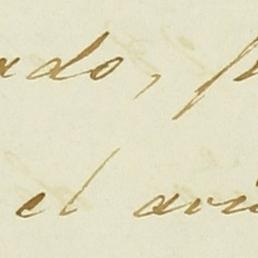 ado, p
el avi